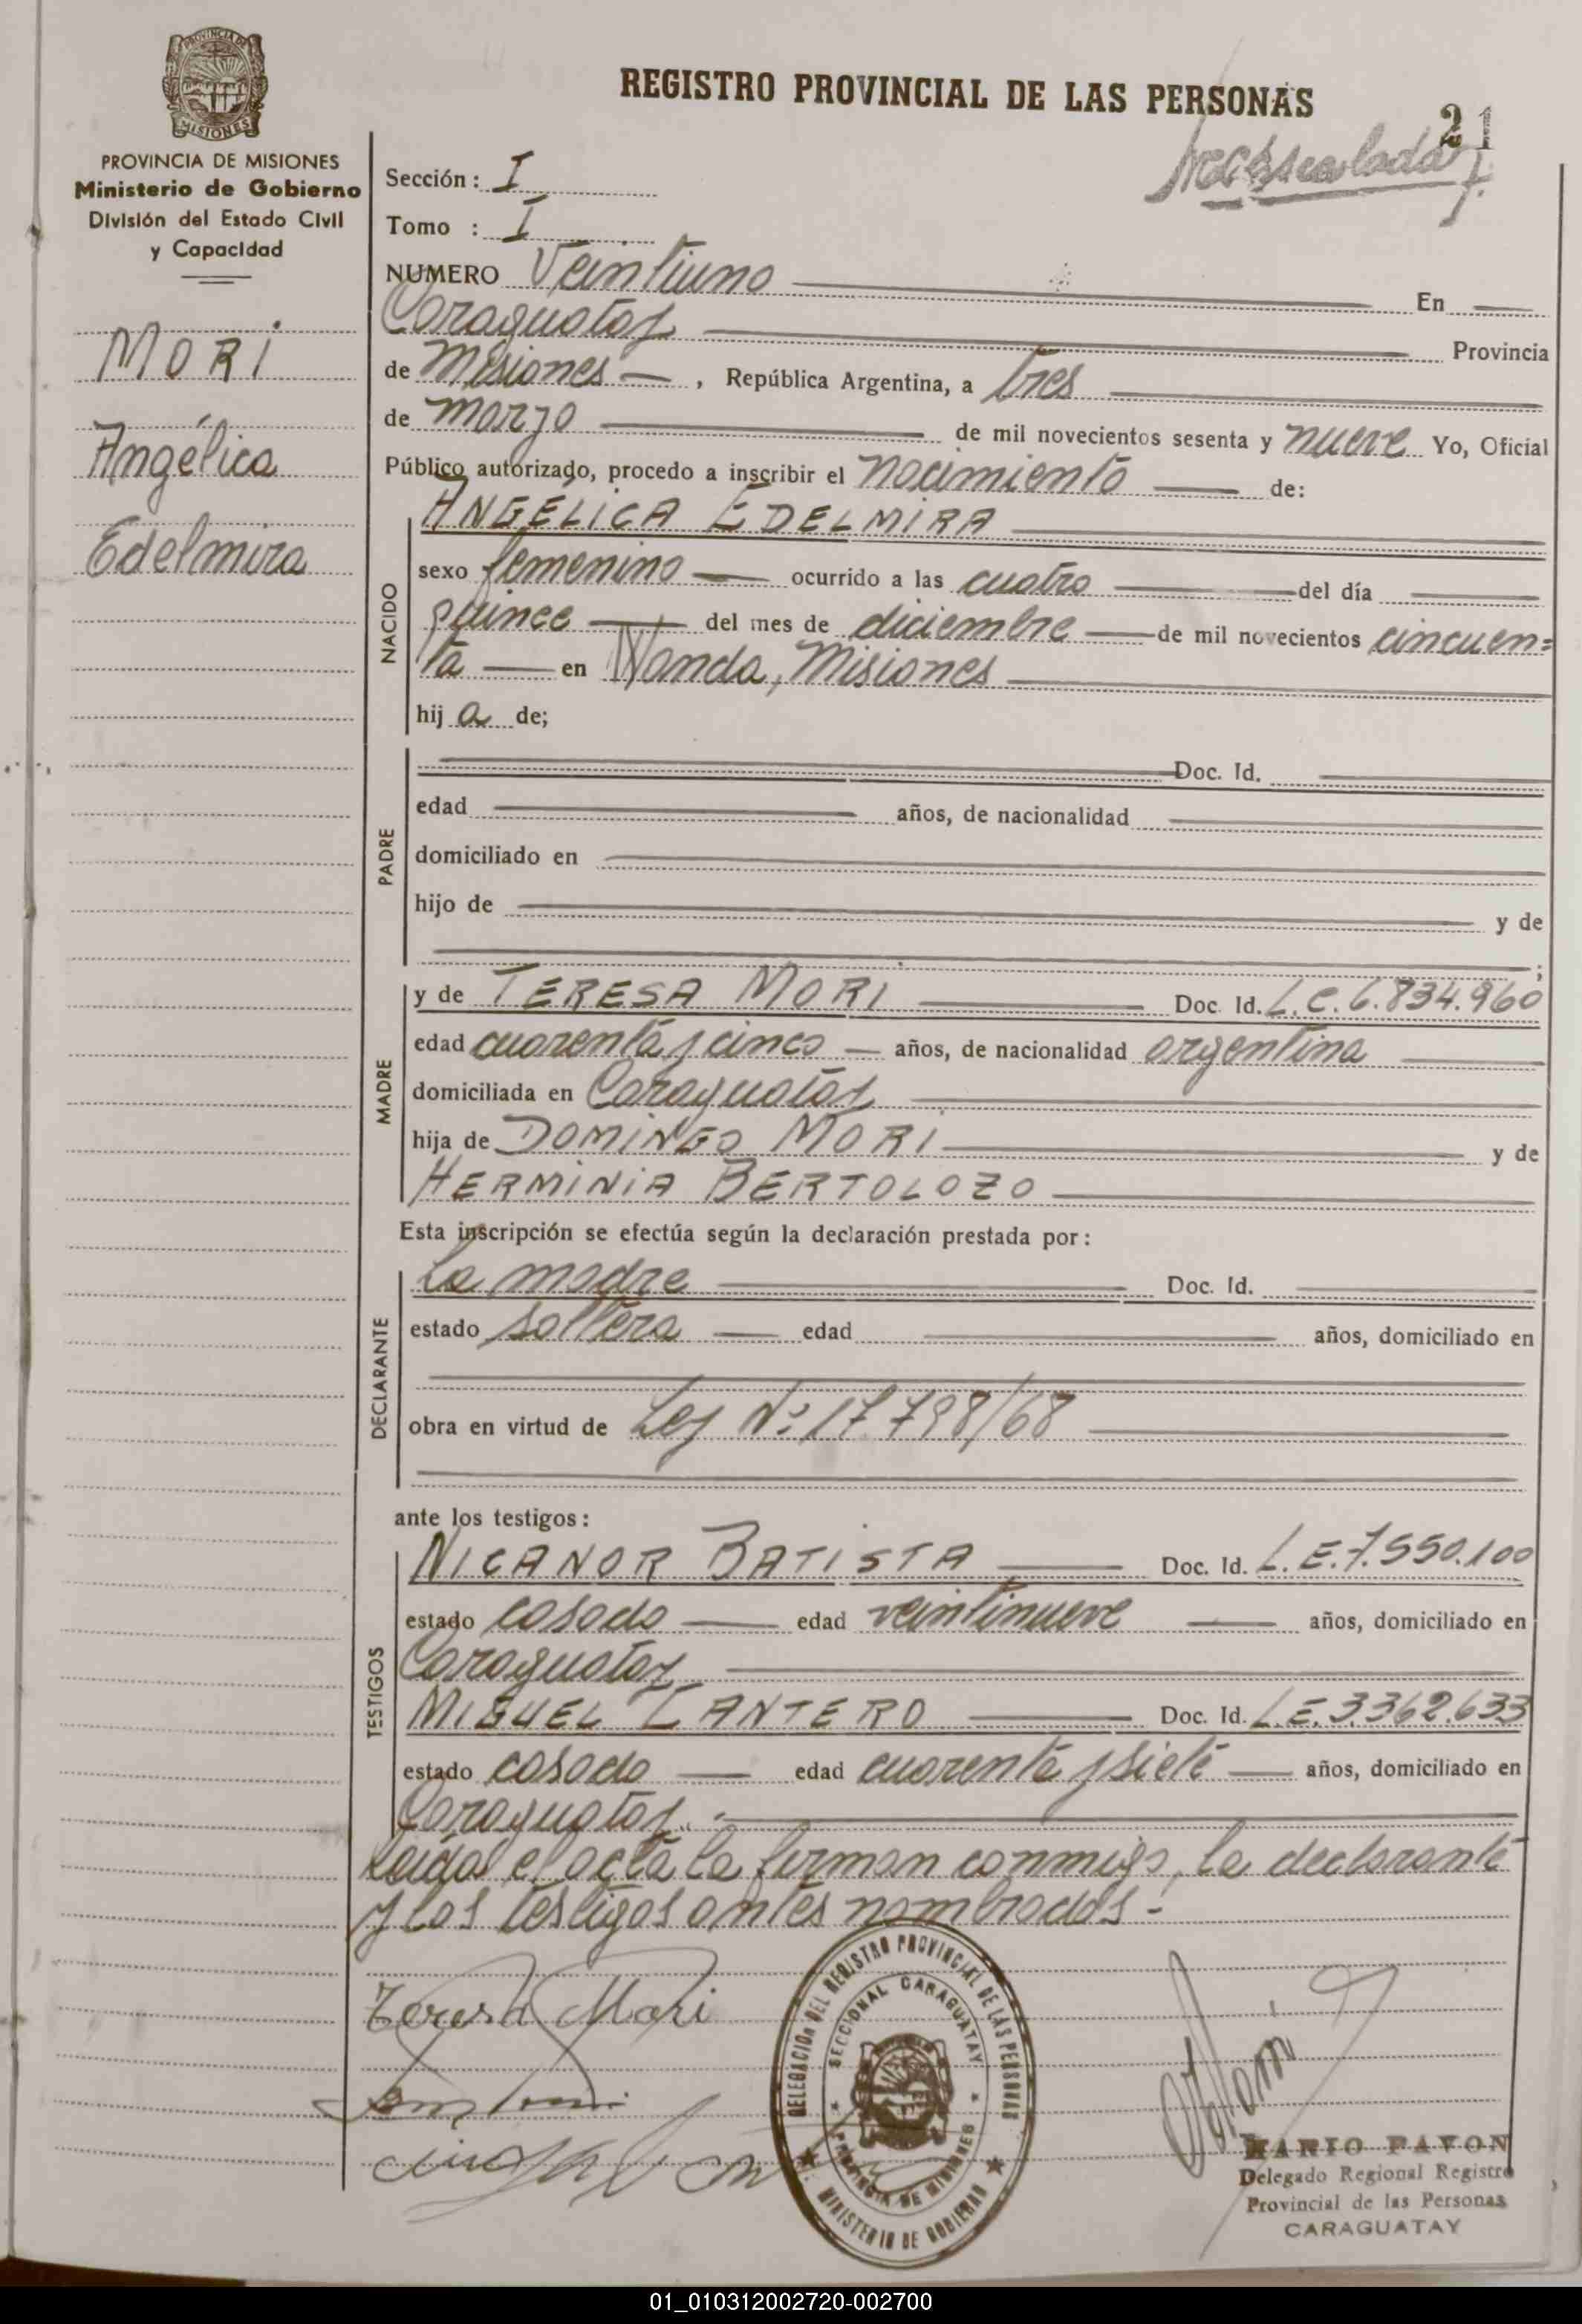 REGISTRO PROVINCIAL DE LAS PERSONAS
21
PROVINCIA DE MISIONES
MISIONES
PROVINCIA DE MISIONES
Ministerio de Gobierno
División del Estado Civil
y Capacidad
MORI
Angélica
Edelmira
Sección: I
Tomo : I
NUMERO Veintiuno En
Caraguatay Provincia
de Misiones, República Argentina, a tres
de marzo de mil novecientos sesenta y nueve Yo, Oficial
Público autorizado, procedo a inscribir el nacimiento de:
NACIDO
ANGÉLICA EDELMIRA
sexo femenino ocurrido a las cuatro del día
quince del mes de diciembre de mil novecientos cincuen=
ta en Wanda, Misiones
hij a de;
PADRE
Doc. Id.
edad años, de nacionalidad
domiciliado en
hijo de y de
;
MADRE
y de TERESA MORI Doc. Id. L.C. 6.834.960
edad cuarenta y cinco años, de nacionalidad argentina
domiciliada en Caraguatay
hija de DOMINGO MORI y de
HERMINIA BERTOLOZO
Esta inscripción se efectúa según la declaración prestada por:
DECLARANTE
La madre Doc. Id.
estado soltera edad años, domiciliado en
obra en virtud de Ley Nº 17.798/68
ante los testigos:
TESTIGOS
NICANOR BATISTA Doc. Id. L.E. 7.550.100
estado casado edad veintinueve años, domiciliado en
Caraguatay
MIGUEL ANTERO Doc. Id. L.E. 3.362.633
estado casado edad cuarenta y siete años, domiciliado en
Caraguatay.
Leída el acta la firman conmigo, la declarante
y los testigos antes nombrados.-
Teresa Mori
DELEGACION DEL REGISTRO PROVINCIAL DE LAS PERSONAS
SECCIONAL CARAGUATAY
PROVINCIA DE MISIONES
MINISTERIO DE GOBIERNO
MARIO PAVON
Delegado Regional Registro
Provincial de las Personas
CARAGUATAY
01_010312002720-002700